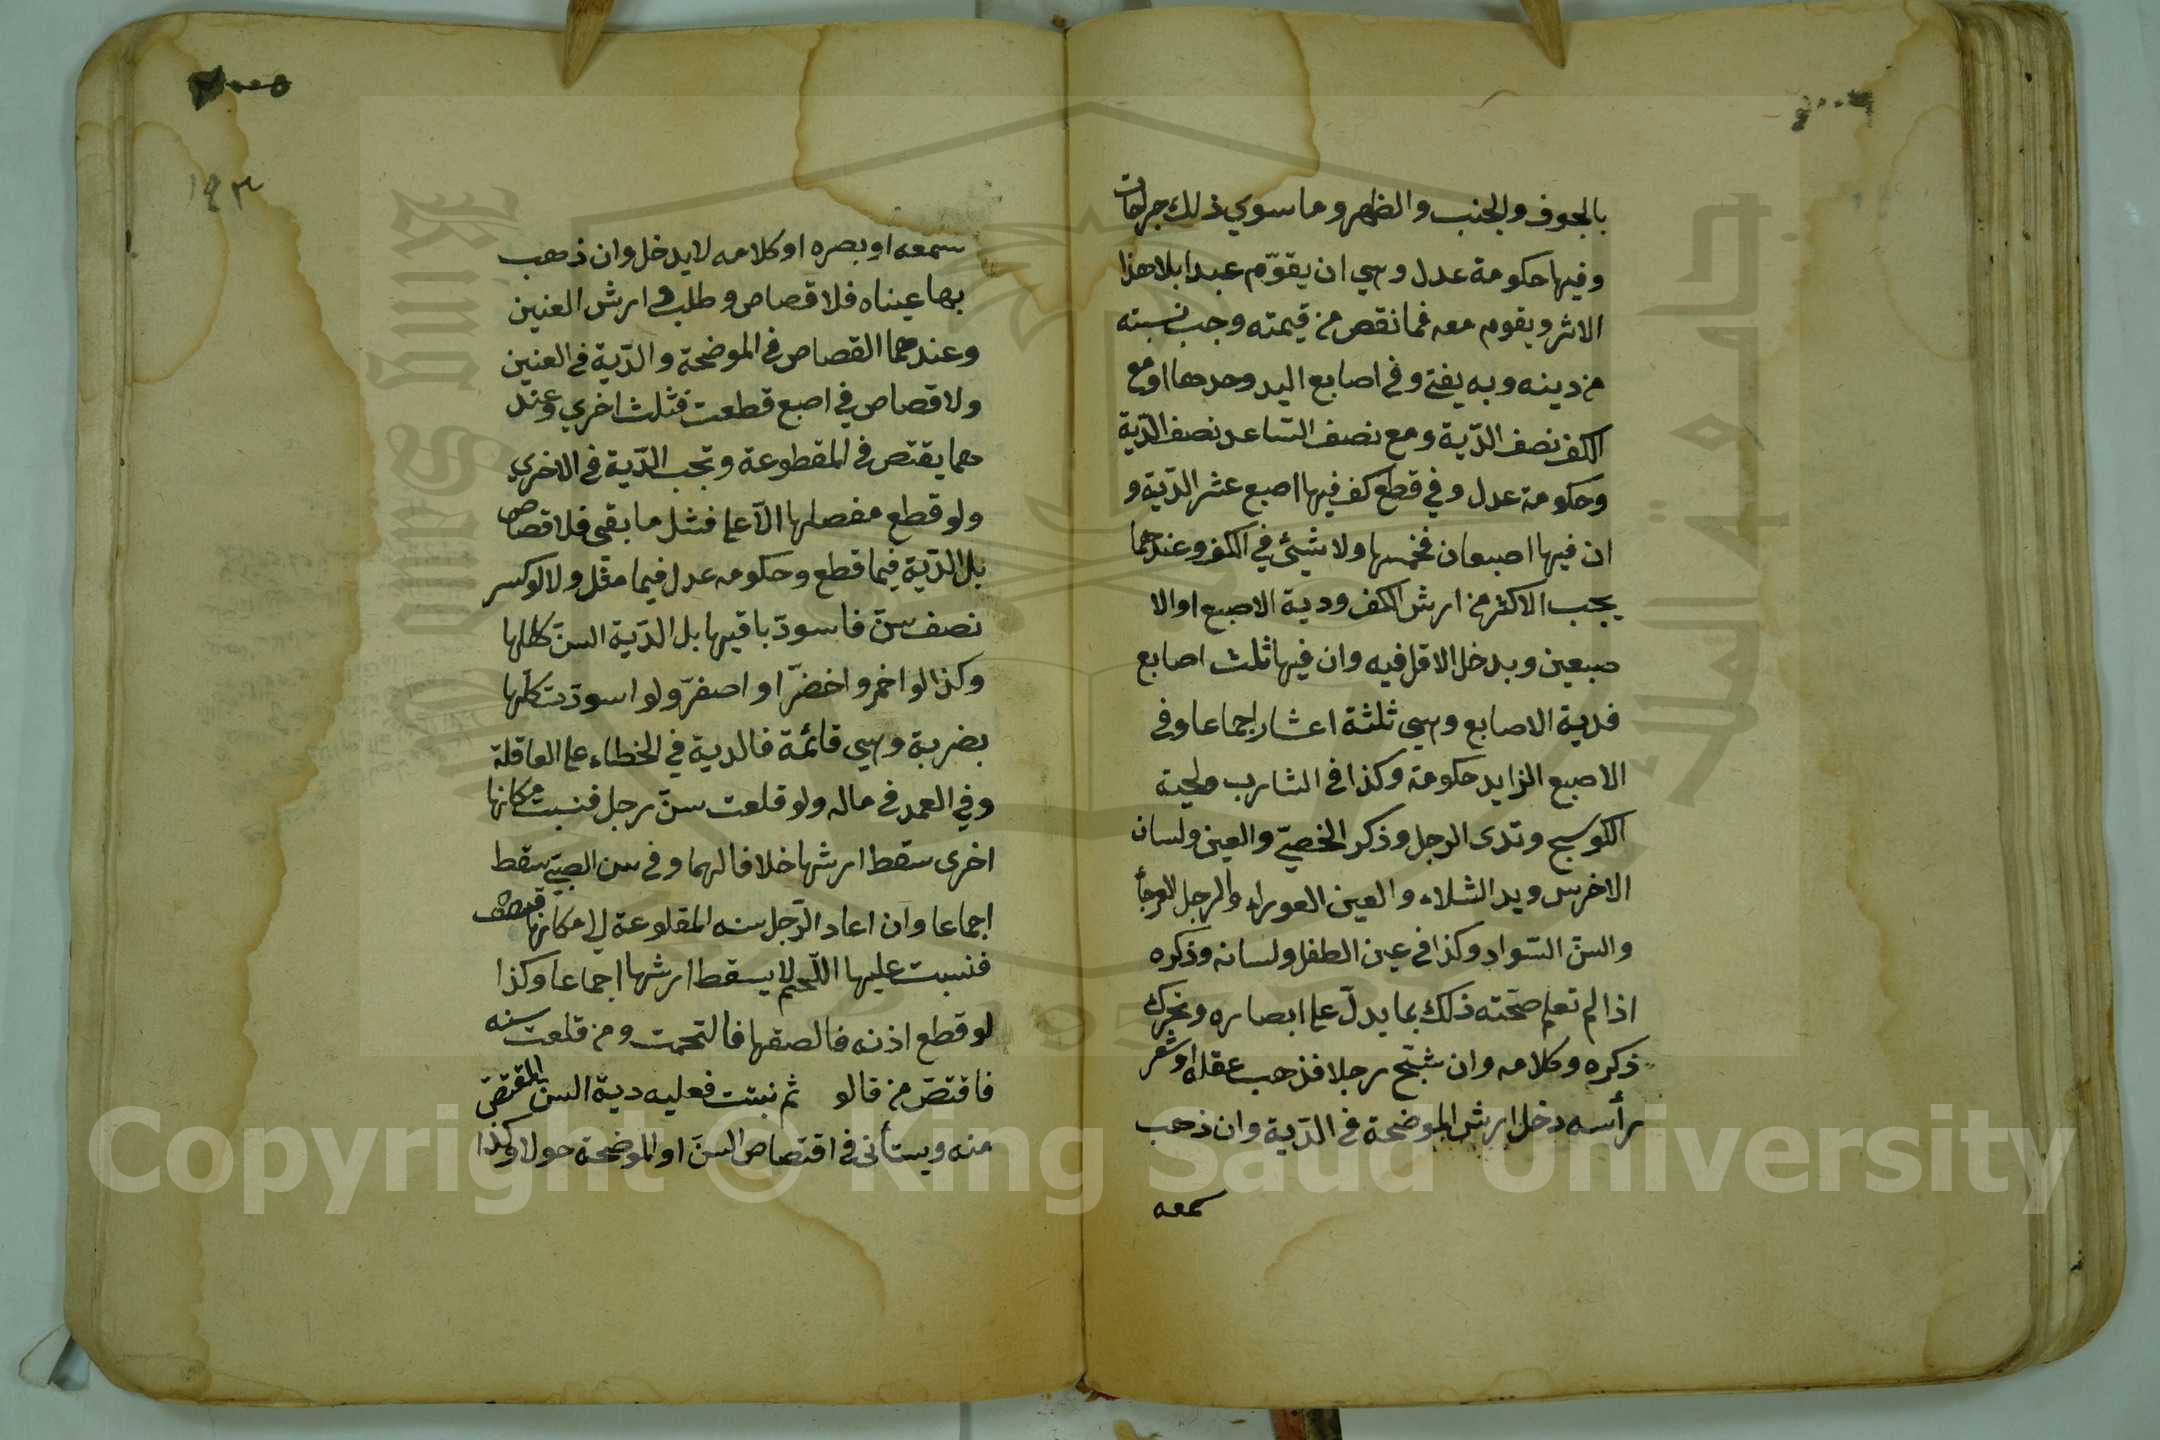 بالجوف والجنب والظهر وما سوي ذلك جراحات
وفيها حكومة عدل وهي ان يقوّم عبدا بلا هذا
الاثر ويقوم معه فما نقص من قيمته وجب نسبته
من دينه وبه يفتي وفي اصابع اليد وحدها او مع
الكف نصف الدّية ومع نصف السّاعد نصف الدّية
وحكومة عدل وفي قطع كف فيها اصبع عشر الدّية و
ان فيها اصبعان فخمسها ولا شيئ في الكف وعندهما
يجب الاكثر من ارش الكف ودية الاصبع او الا
صبعين ويدخل الاقل فيه وان فيها ثلث اصابع
فدية الاصابع وهي ثلثة اعشار اجماعا وفي
الاصبع الزايد حكومة وكذا في الشارب ولحية
الكوسج وثدى الرجل وذكر الخصيّ والعين ولسان
الاخرس ويد الشلاء والعين العوراء والرجل العرجا
والسنّ السّواد وكذا في عين الطفل ولسانه وذكره
اذا لم تعلم صحّته ذلك بما يدلّ على ابصاره وتحرك
ذكره وكلامه وان شبّح رجلا فذهب عقله او شعر
رأسه دخل ارش الموضحة في الدّية وان ذهب
سمعه
سمعه او بصره او كلامه لا يدخل وان ذهب
بها عيناه فلا قصاص وطلب ارش العنين
وعندهما القصاص في الموضحة والدّية في العنين
ولا قصاص في اصبع قطعت فثلث اخري وعند
هما يقتص في المقطوعة وتجب الدّية في الاخري
ولو قطع مفصلها الاعلى فشل ما بقى فلا قصاص
بل الدّية فيما قطع وحكومه عدل فيما مثل ولا لو كسر
نصف سنّ فاسودّ باقيها بل الدّية السنّ كلها
وكذا لو احمر واخضرّ او اصفرّ ولو اسودّت كلّها
بضربة وهي قائمة فالدية في الخطاء على العاقلة
وفي العمد في ماله ولو قلعت سنّ رجل فنبت مكانها
اخرى سقط ارشها خلافا لهما وفي سن الصبيّ سقط
اجماعا وان اعاد الرّجل سنه المقلوعة الى مكانها
فنبت عليها اللّحم لا يسقط ارشها اجماعا وكذا
لو قطع اذنه فالصقها فالتحمت ومن قلعت سنه
فاقتصّ من قالو ثم نبتت فعليه دية السنّ المقتصّ
منه ويستأنى في اقتصاص السنّ او الموضحة حولا وكذا
١٩٣
Copyright © King Saud University
King Saud University
جامعة الملك سعود
1957